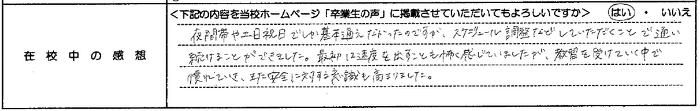 <下記の内容を当校ホームページ「卒業生の声」に掲載させていただいてもよろしいですか> はい ・ いいえ
在校中の感想
夜間帯や土日祝日でしか基本通えなかったのですが、スケジュール調整などしていただくことで通い
続けることができました。最初は速度を出すことも怖く感じていましたが、教習を受けていく中で
慣れていき、また安全に対する意識も高まりました。